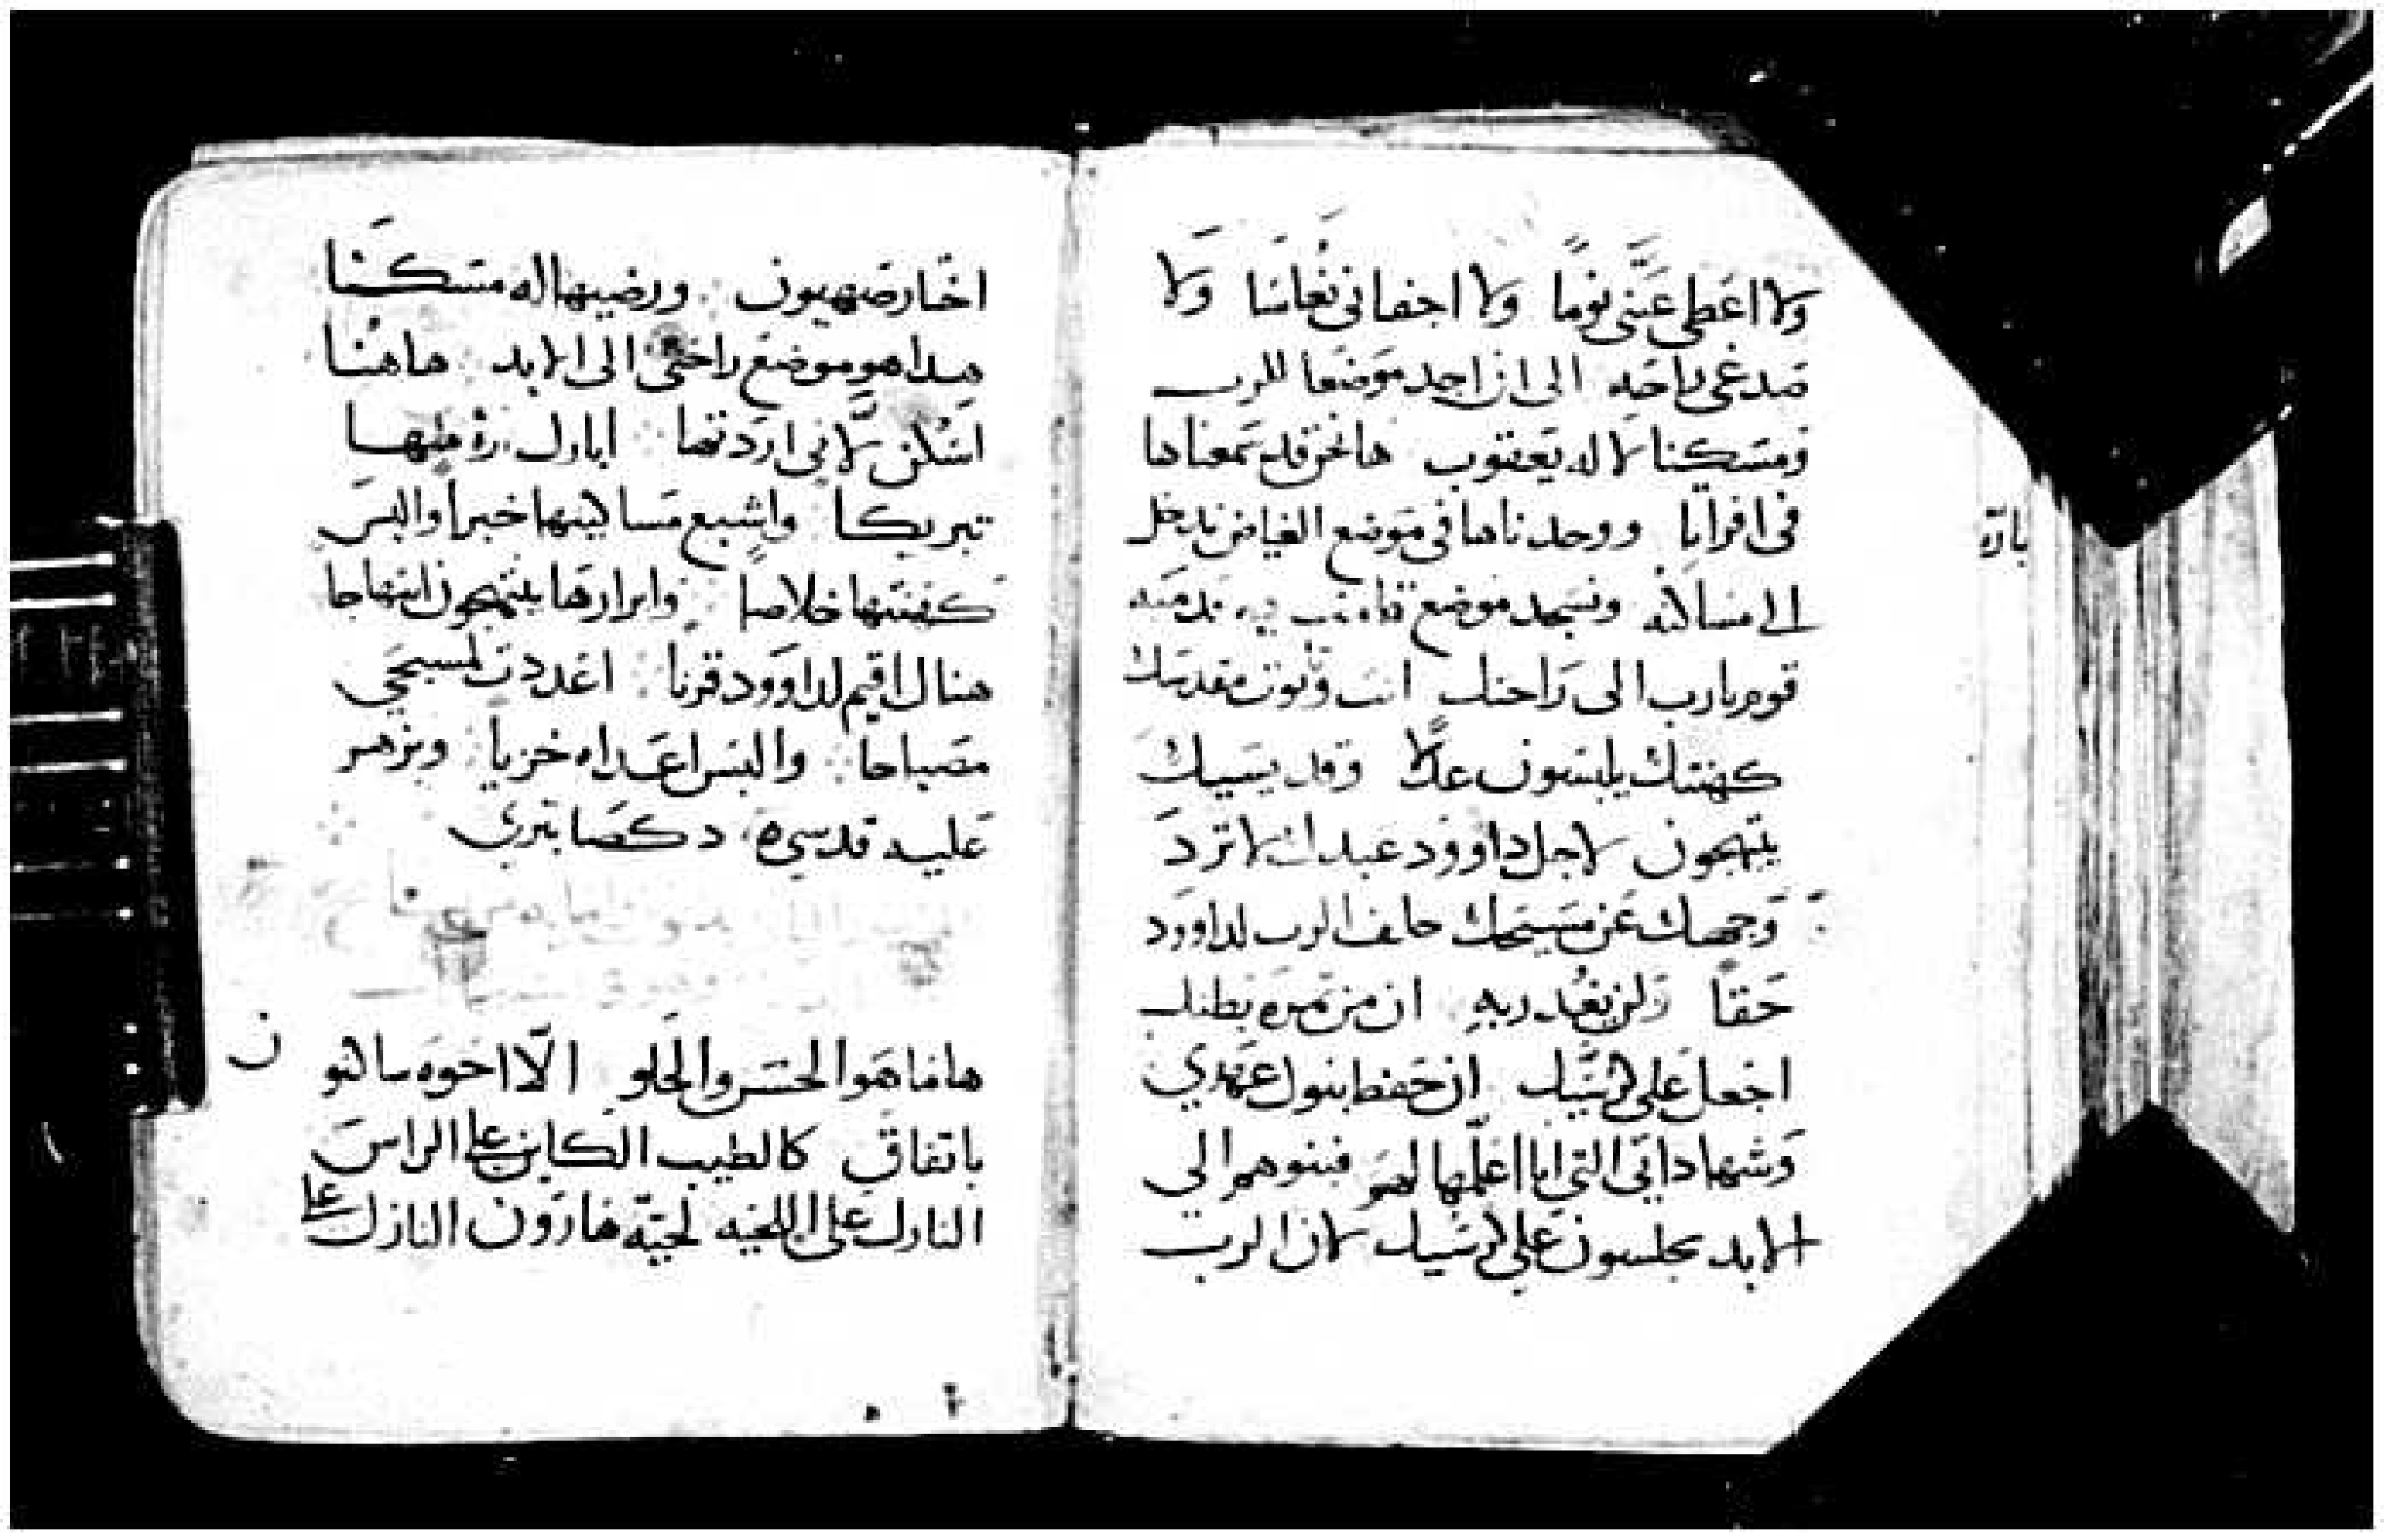 ولا اعطي عَيني نومًا ولا اجفاني نُعاسًا ولا
صدغي راحه الى ان اجد موضعا للرب
ومسكنا لاله يعقوب هانحن قد سمعناها
في افراتا ووجدناها في موضع الغياض ندخل
الى مساكنه ونسجد موضع قدميه
قوم يارب الى راحتك انت وتابوت مقدسك
كهنتك يلبسون عدلًا وقديسيك
يبتهجون لاجل داوود عبدك لا ترد
وجهك عن مسيحك حلف الرب لداوود
حقًا ولن يغدر به ان من ثمره بطنك
اجعل على كرسيك ان حفظ بنوك عهدي
وشهاداتي التي انا اعلمها لهم فبنوهم الى
الابد يجلسون على كرسيك لان الرب
بادَه
اختار صهيون ورضيها له مسكنًا
هذا هو موضع راحتي الى الابد هاهنا
اسكن لاني اردتها ابارك
تبريكًا واشبع مساكينها خبزًا والبس
كهنتها خلاصًا وابرارها يبتهجون ابتهاجا
هناك اقيم لداوود قرنا اعددت لمسيحي
مصباحًا والبس اعداه خزيًا ويزهر
عليه قدسي
ها ما هو الحسن والحلو الّا اخوه ساكنو ن
باتفاق كالطيب الكاين على الراس
النازل على اللحيه لحيّه هارون النازل على